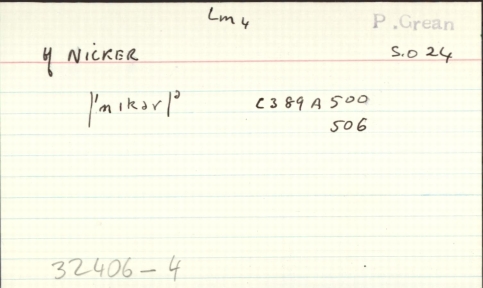 Lm4
P. Grean
NICKER
S.O 24
|'nikər|²
C389A500
506
32406-4